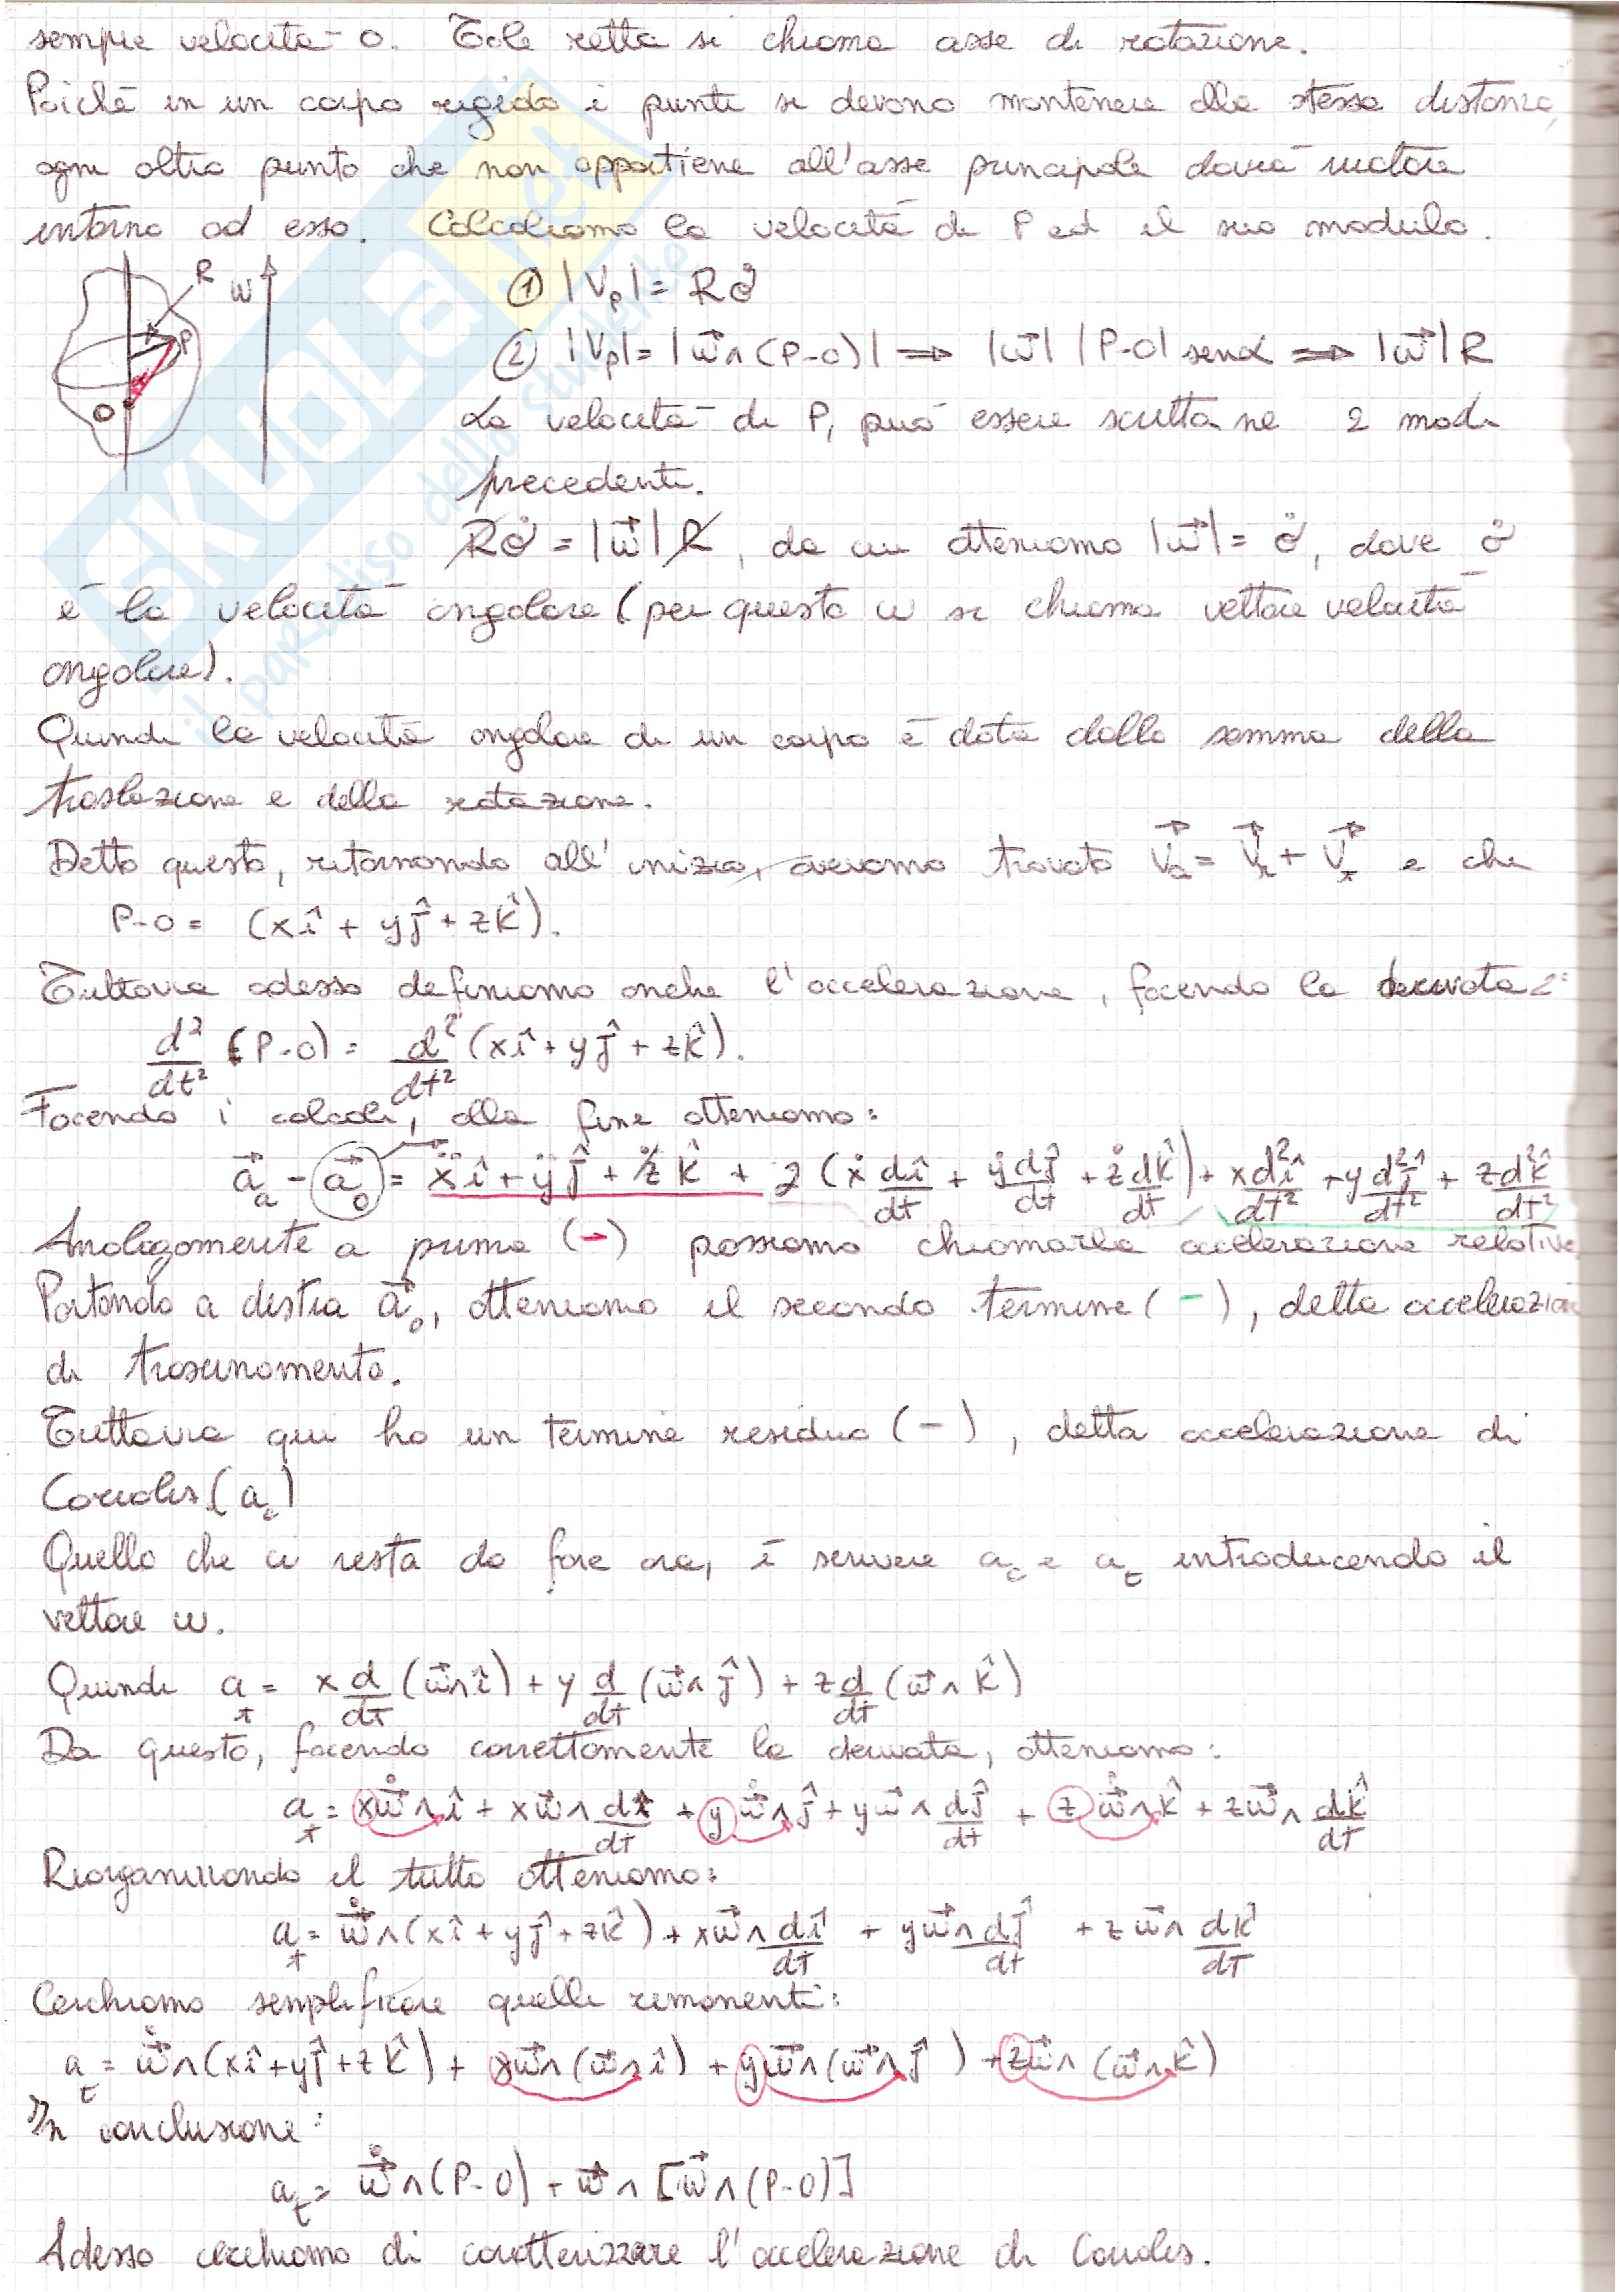 sempre velocità 0. Tale retta si chiama asse di rotazione.
Poiché in un corpo rigido i punti si devono mantenere alla stessa distanza,
ogni altro punto che non appartiene all'asse principale dovrà ruotare
intorno ad esso. Calcoliamo la velocità di P ed il suo modulo.
R
P
O
α
ω
① |Vₚ| = R σ̊
② |Vₚ| = |ω⃗ ∧ (P-O)| ⇒ |ω⃗| |P-O| senα ⇒ |ω⃗| R
La velocità di P, può essere scritta ne 2 modi
precedenti.
R σ̊ = |ω⃗| R, da cui otteniamo |ω⃗| = σ̊, dove σ̊
è la velocità angolare (per questo ω si chiama vettore velocità
angolare).
Quindi la velocità angolare di un corpo è data dalla somma della
traslazione e della rotazione.
Detto questo, ritornando all'inizio, avevamo trovato V⃗ₐ = V⃗ᵣ + V⃗ₜ e che
P-O = (xî + yĵ + zk̂).
Tuttavia adesso definiamo anche l'accelerazione, facendo la derivata 2ª
d²/dt² (P-O) = d²/dt² (xî + yĵ + zk̂).
Facendo i calcoli, alla fine otteniamo:
a⃗ₐ - a⃗₀ = ẍî + ÿĵ + z̈k̂ + 2(ẋ dî/dt + ẏ dĵ/dt + ż dk̂/dt) + x d²î/dt² + y d²ĵ/dt² + z d²k̂/dt²
Analogamente a prima (-) possiamo chiamarla accelerazione relativa
Portando a destra a⃗₀, otteniamo il secondo termine (-), detta accelerazione
di trascinamento.
Tuttavia qui ho un termine residuo (-), detta accelerazione di
Coriolis (a_c)
Quello che ci resta da fare ora, è scrivere a_c e a_t introducendo il
vettore ω.
Quindi a_t = x d/dt (ω⃗∧î) + y d/dt (ω⃗∧ĵ) + z d/dt (ω⃗∧k̂)
Da questo, facendo correttamente la derivata, otteniamo:
a_t = xω⃗̊∧î + xω⃗∧ dî/dt + yω⃗̊∧ĵ + yω⃗∧ dĵ/dt + zω⃗̊∧k̂ + zω⃗∧ dk̂/dt
Riorganizzando il tutto otteniamo:
a_t = ω⃗̊∧(xî + yĵ + zk̂) + xω⃗∧ dî/dt + yω⃗∧ dĵ/dt + zω⃗∧ dk̂/dt
Cerchiamo semplificare quelli rimanenti:
a_t = ω⃗̊∧(xî + yĵ + zk̂) + xω⃗∧(ω⃗∧î) + yω⃗∧(ω⃗∧ĵ) + zω⃗∧(ω⃗∧k̂)
In conclusione:
a_t = ω⃗̊∧(P-O) + ω⃗∧[ω⃗∧(P-O)]
Adesso cerchiamo di caratterizzare l'accelerazione di Coriolis.
SKUOLA.net
il paradiso dello studente